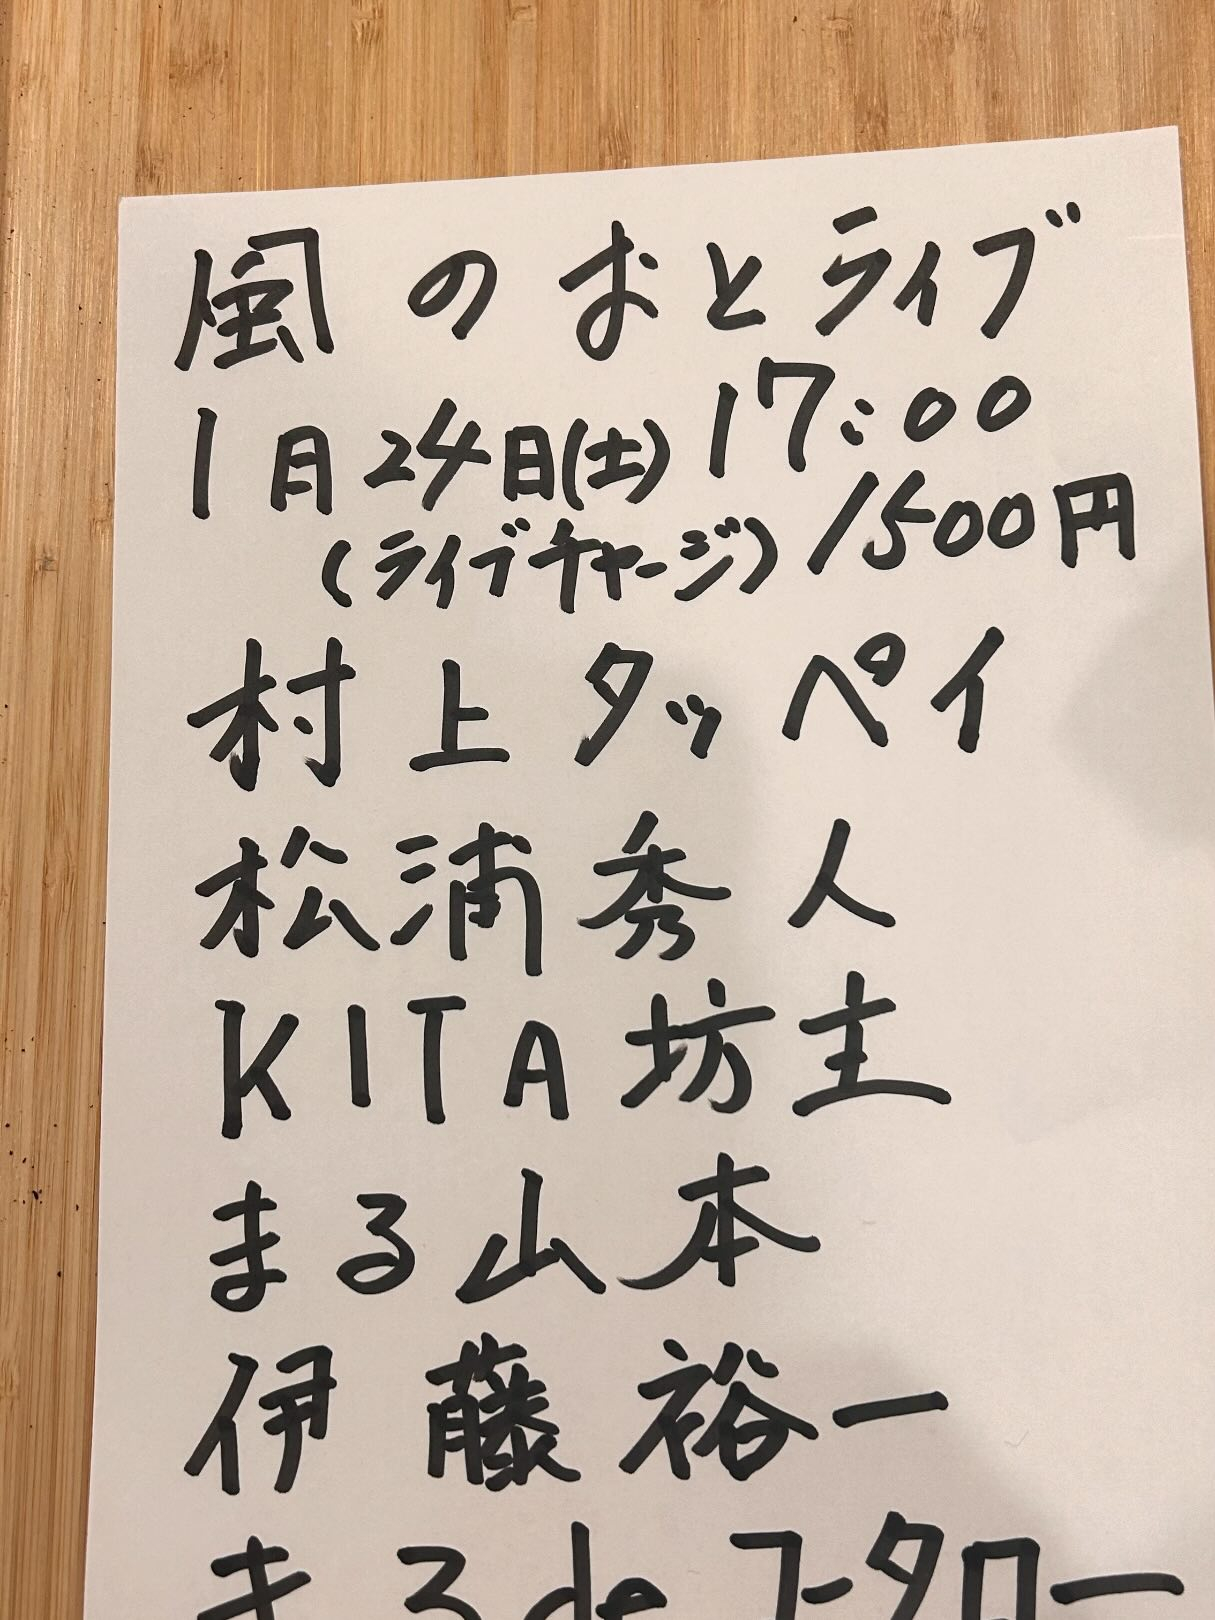 風のおとライブ
1月24日(土) 17:00
(ライブチャージ) 1500円
村上タッペイ
松浦秀人
KITA坊主
まる山本
伊藤裕一
まるdeコータロー